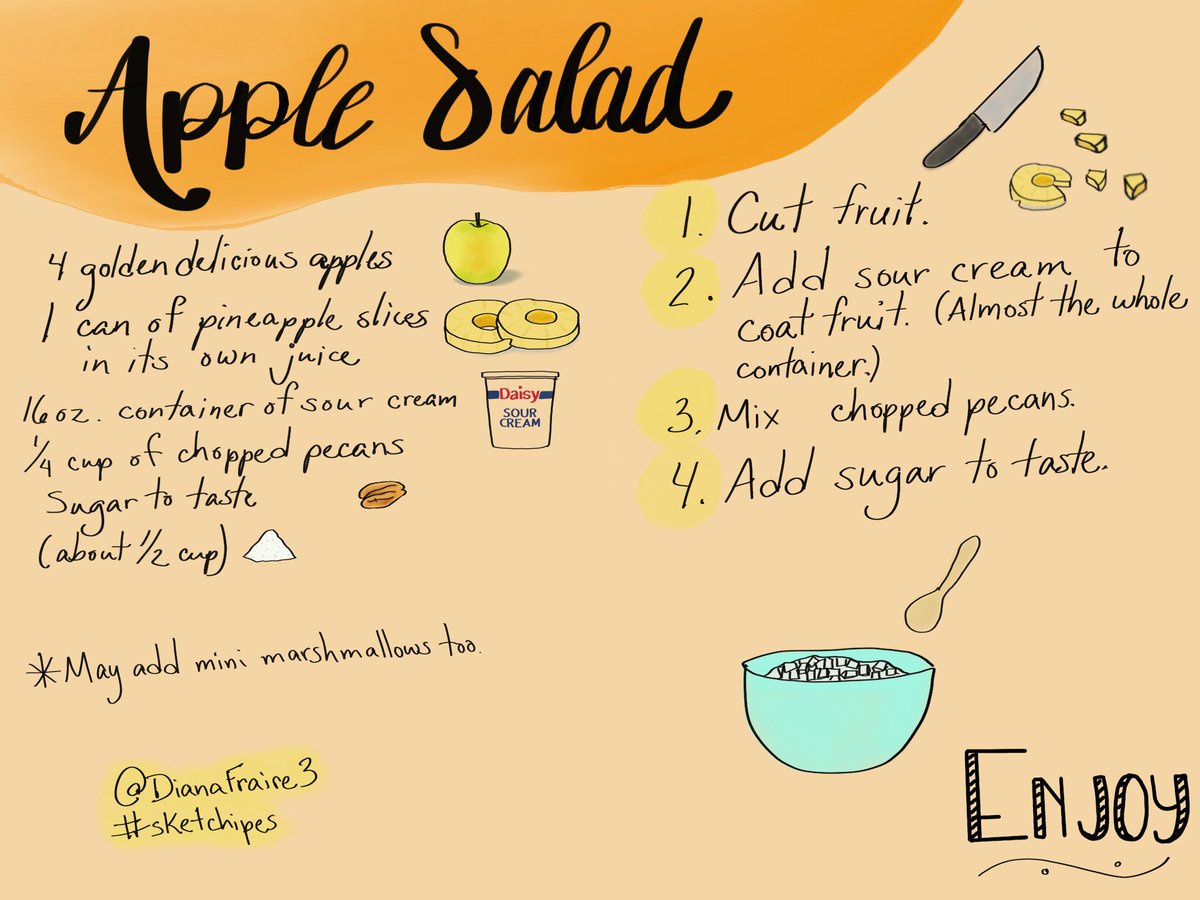 Apple Salad
4 golden delicious apples
1 can of pineapple slices
in its own juice
16 oz. container of sour cream
1/4 cup of chopped pecans
Sugar to taste
(about 1/2 cup)
Daisy
SOUR
CREAM
*May add mini marshmallows too.
@DianaFraire3
#sketchipes
1. Cut fruit.
2. Add sour cream to
coat fruit. (Almost the whole
container.)
3. Mix chopped pecans.
4. Add sugar to taste.
ENJOY